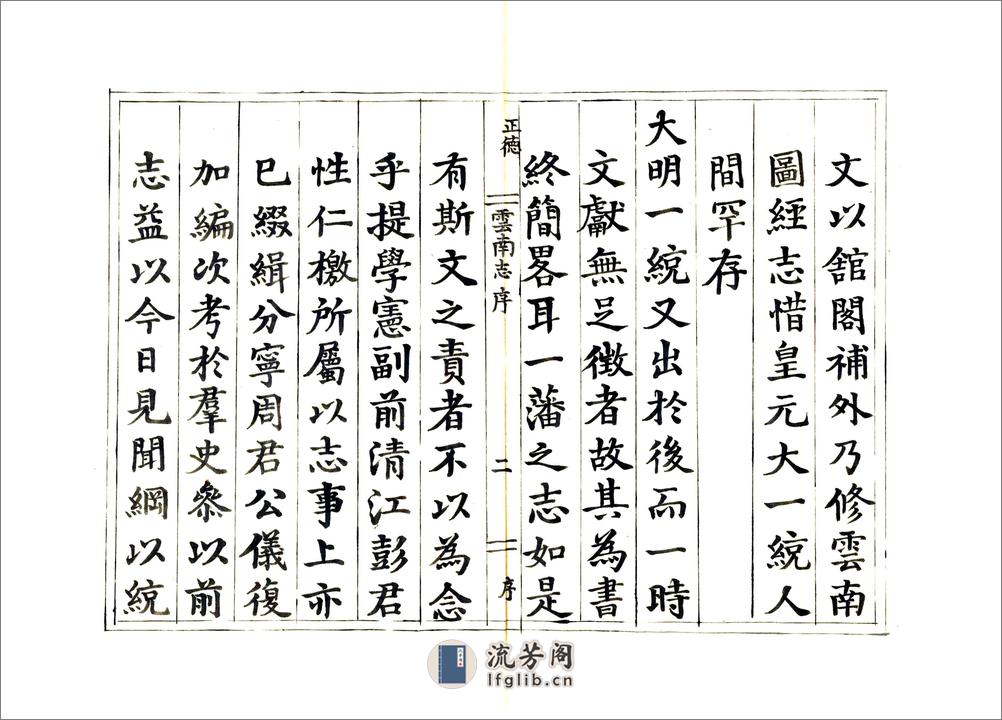 文以舘閣補外乃修雲南
圖經志惜皇元大一統人
間罕存
大明一統又出於後而一時
文獻無足徴者故其為書
終簡畧耳一藩之志如是
正徳
雲南志序
二
序
有斯文之責者不以為念
乎提學憲副前清江彭君
性仁檄所屬以志事上亦
已綴緝分寧周君公儀復
加編次考於羣史叅以前
志益以今日見聞綱以統
流芳阁
lfglib.cn